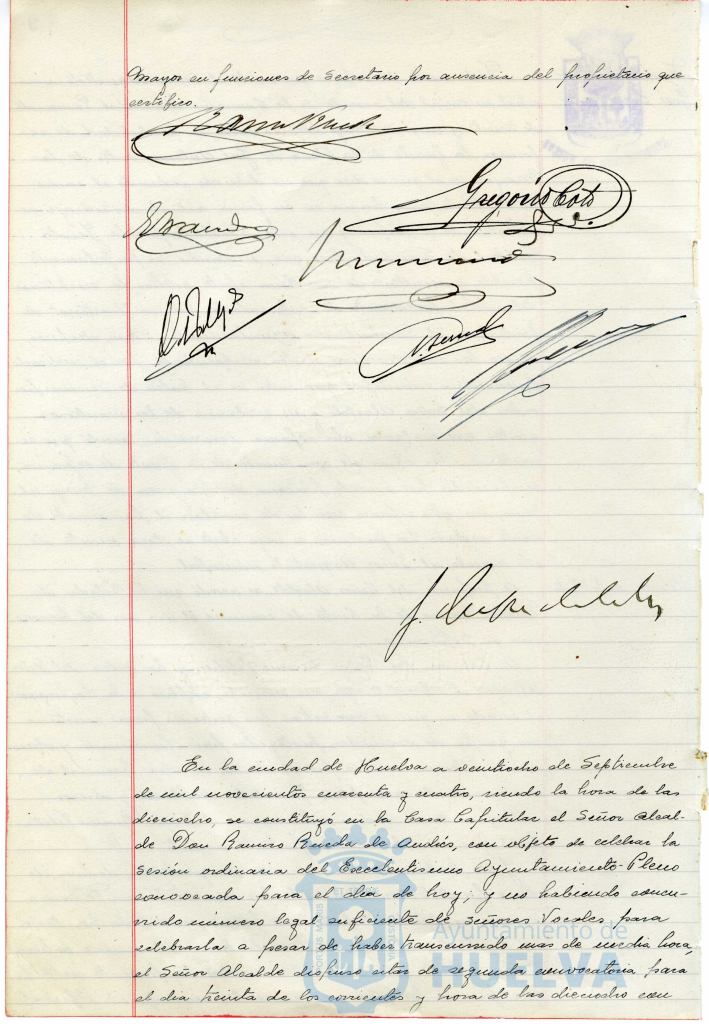 Mayor en funciones de Secretario por ausencia del propietario que
certifico.
Gregorio Coto
En la ciudad de Huelva a veintiocho de Septiembre
de mil novecientos cuarenta y cuatro, siendo la hora de las
dieciocho, se constituyó en la Casa Capitular el Señor Alcal-
de Don Ramiro Rueda de Andrés, con objeto de celebrar la
sesión ordinaria del Excelentísimo Ayuntamiento-Pleno
convocada para el día de hoy; y no habiendo concu-
rrido número legal suficiente de Señores Vocales para
celebrarla a pesar de haber transcurrido mas de media hora,
el Señor Alcalde dispuso citar de segunda convocatoria para
el dia treinta de los corrientes y hora de las dieciocho con
Ayuntamiento de
HUELVA